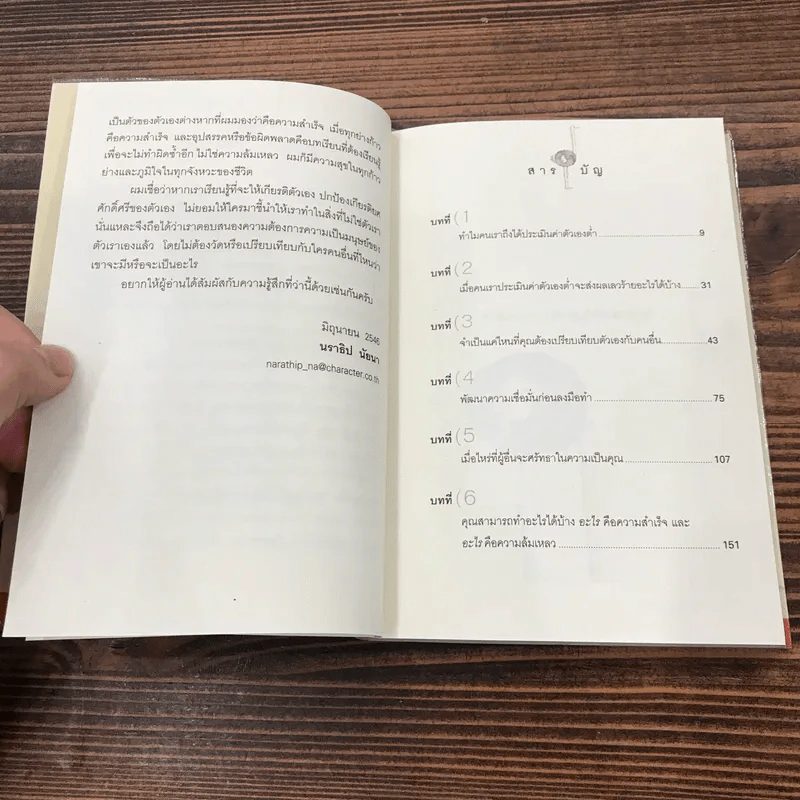 เป็นตัวของตัวเองต่างหากที่ผมมองว่าคือความสำเร็จ เมื่อทุกย่างก้าว
คือความสำเร็จ และอุปสรรคหรือข้อผิดพลาดคือบทเรียนที่ต้องเรียนรู้
เพื่อจะไม่ทำผิดซ้ำอีก ไม่ใช่ความล้มเหลว ผมก็มีความสุขในทุกก้าว
ย่างและภูมิใจในทุกจังหวะของชีวิต
ผมเชื่อว่าหากเราเรียนรู้ที่จะให้เกียรติตัวเอง ปกป้องเกียรติยศ
ศักดิ์ศรีของตัวเอง ไม่ยอมให้ใครมาชี้นำให้เราทำในสิ่งที่ไม่ใช่ตัวเรา
นั่นแหละจึงถือได้ว่าเราตอบสนองความต้องการความเป็นมนุษย์ของ
ตัวเราเองแล้ว โดยไม่ต้องวัดหรือเปรียบเทียบกับใครคนอื่นที่ไหนว่า
เขาจะมีหรือจะเป็นอะไร
อยากให้ผู้อ่านได้สัมผัสกับความรู้สึกที่ว่านี้ด้วยเช่นกันครับ
มิถุนายน 2546
นราธิป นัยนา
narathip_na@character.co.th
สารบัญ
บทที่ (1
ทำไมคนเราถึงได้ประเมินค่าตัวเองต่ำ 9
บทที่ (2
เมื่อคนเราประเมินค่าตัวเองต่ำจะส่งผลเลวร้ายอะไรได้บ้าง 31
บทที่ (3
จำเป็นแค่ไหนที่คุณต้องเปรียบเทียบตัวเองกับคนอื่น 43
บทที่ (4
พัฒนาความเชื่อมั่นก่อนลงมือทำ 75
บทที่ (5
เมื่อไหร่ที่ผู้อื่นจะศรัทธาในความเป็นคุณ 107
บทที่ (6
คุณสามารถทำอะไรได้บ้าง อะไร คือความสำเร็จ และ
อะไร คือความล้มเหลว 151